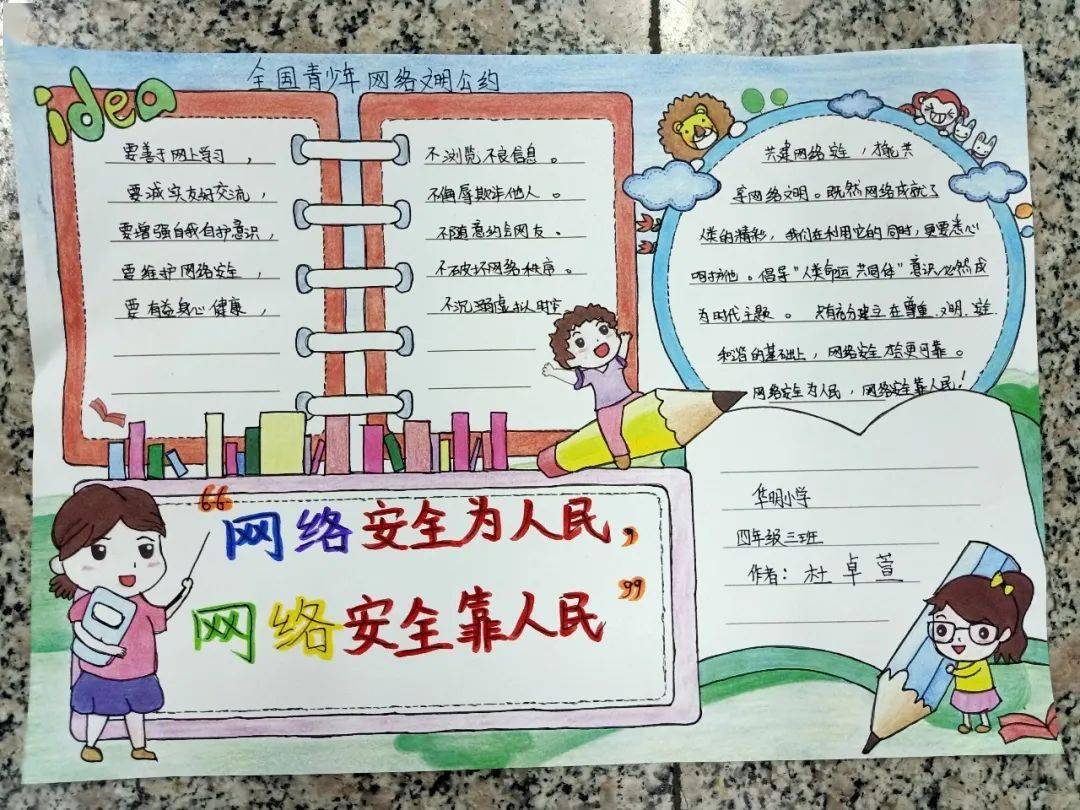 idea
全国青少年网络文明公约
要善于网上学习，
要诚实友好交流，
要增强自我自护意识，
要维护网络安全，
要有益身心健康，
不浏览不良信息。
不侮辱欺诈他人。
不随意约会网友。
不破坏网络秩序。
不沉溺虚拟时空
共建网络安全，共
享网络文明。既然网络成就了
人类的精彩，我们在利用它的同时，更要悉心
呵护他。倡导“人类命运共同体”意识必然成
为时代主题。只有充分建立在尊重、文明、安全、
和谐的基础上，网络安全才会更可靠。
网络安全为人民，网络安全靠人民！
“网络安全为人民，
网络安全靠人民”
华明小学
四年级三班
作者：杜卓萱